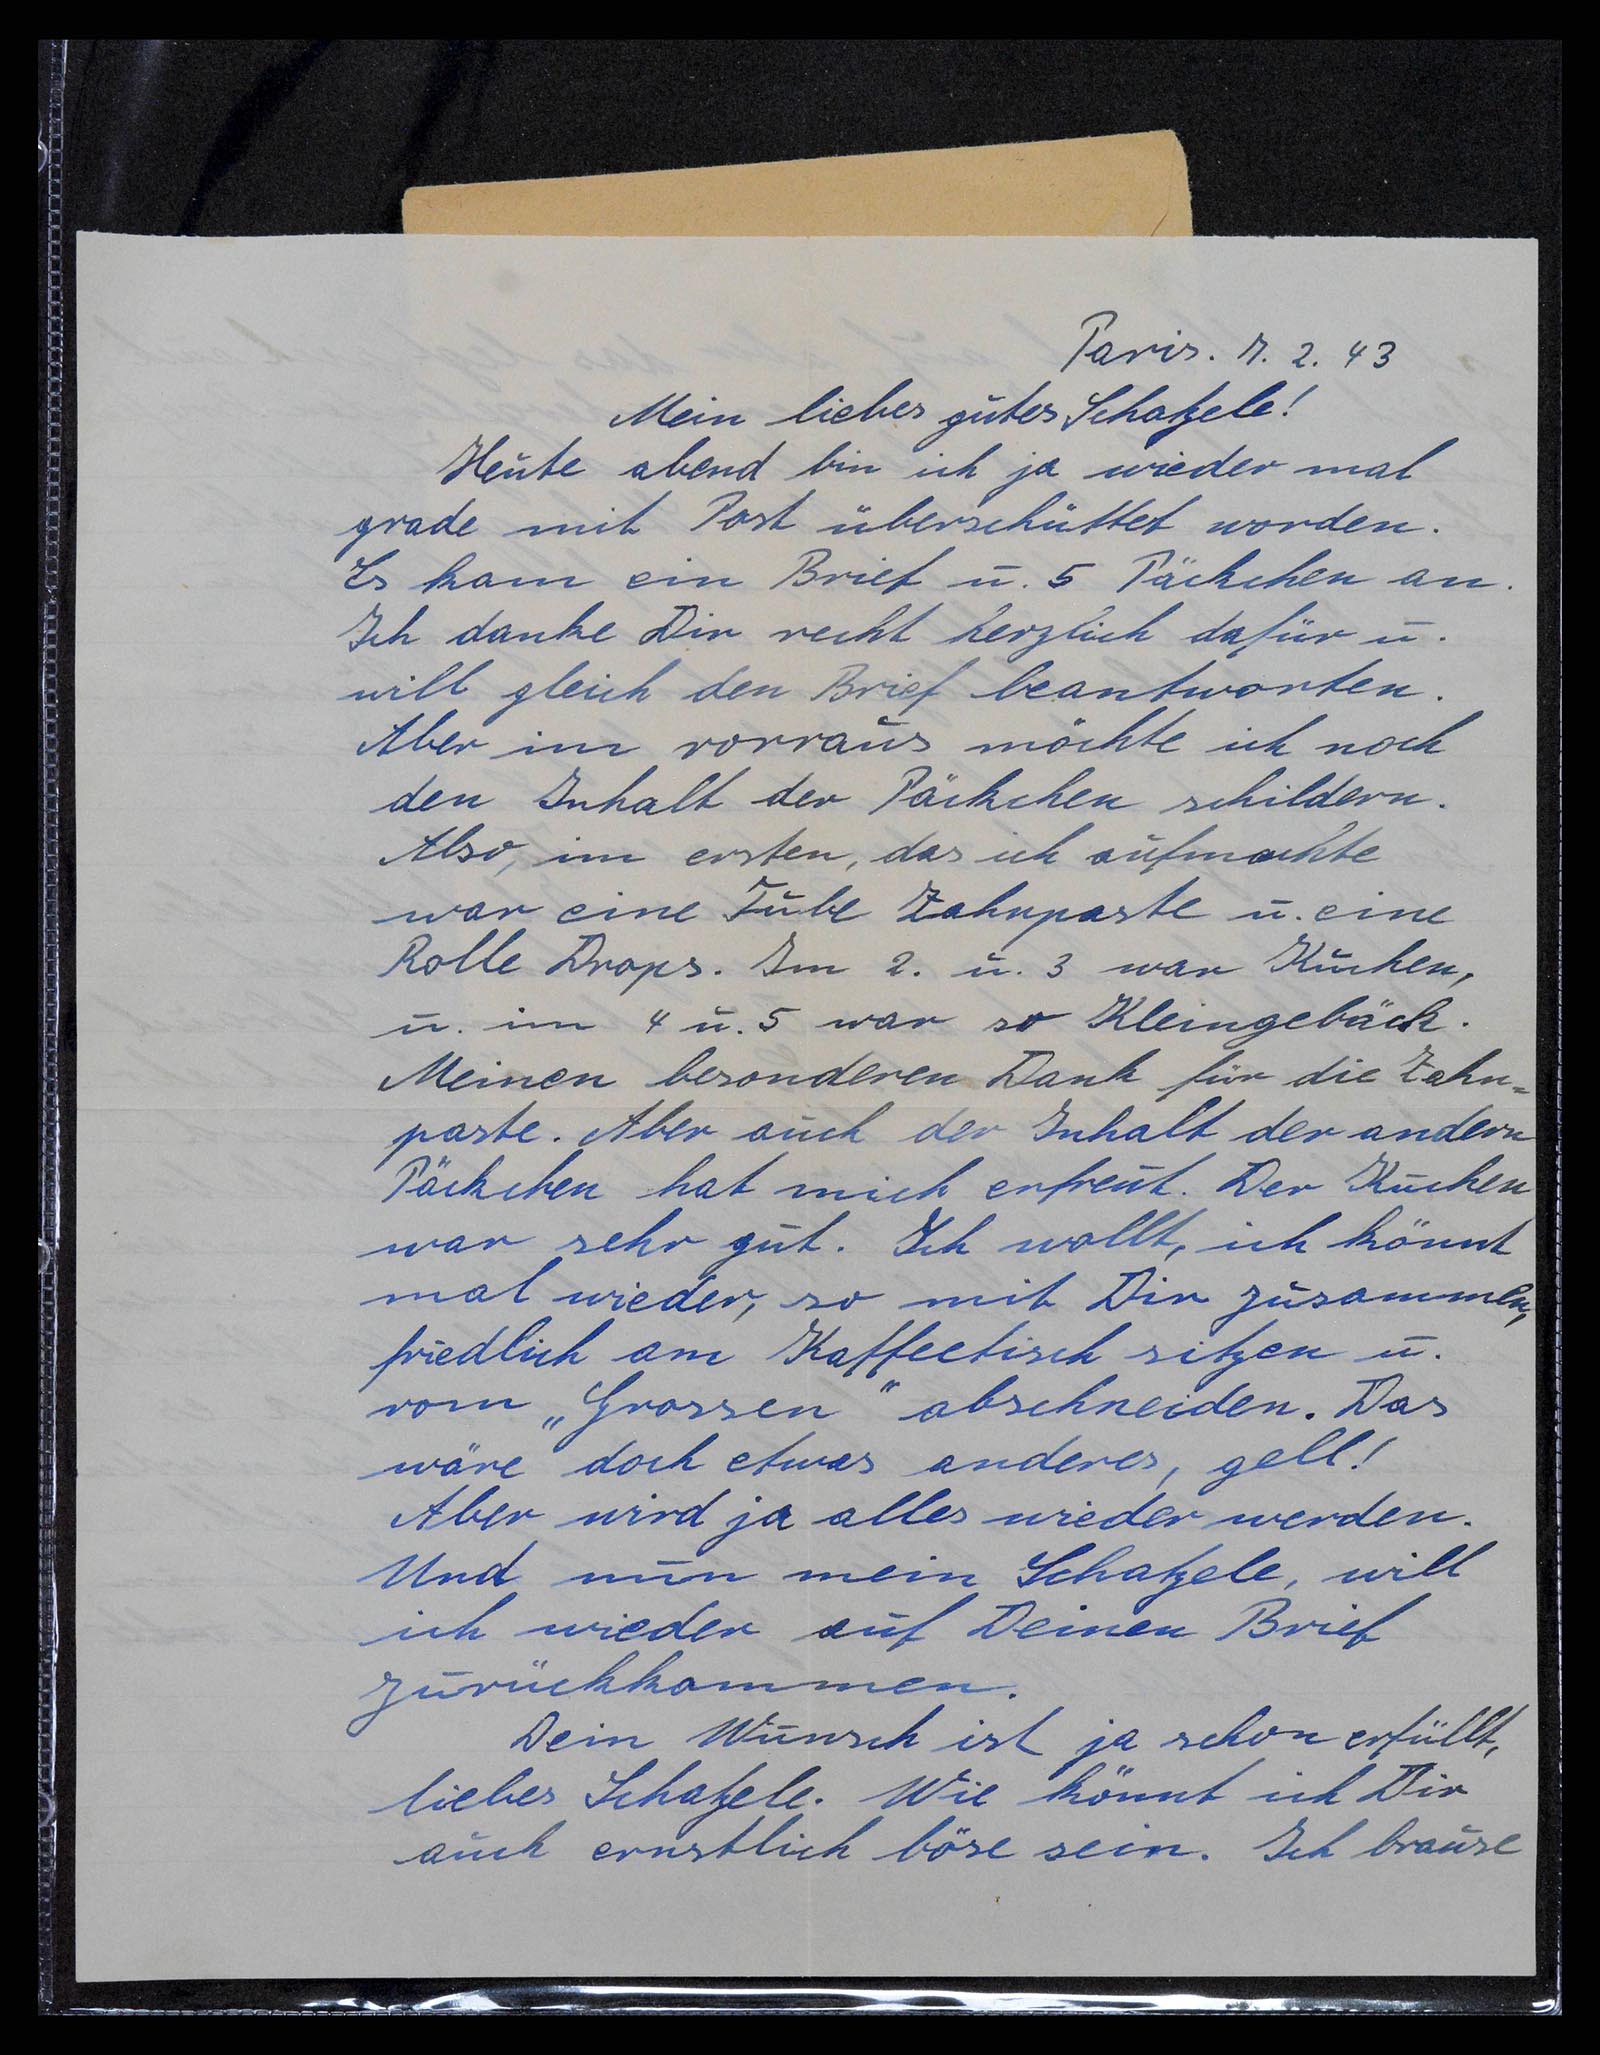 Paris. 7. 2. 43
Mein liebes gutes Schatzele!
Heute abend bin ich ja wieder mal
grade mit Post überschüttet worden.
Es kam ein Brief u. 5 Päckchen an.
Ich danke Dir recht herzlich dafür u.
will gleich den Brief beantworten.
Aber im vorraus möchte ich noch
den Inhalt der Päckchen schildern.
Also, im ersten, das ich aufmachte
war eine Tube Zahnpaste u. eine
Rolle Drops. Im 2. u. 3 war Kuchen,
u. im 4 u. 5 war so Kleingebäck.
Meinen besonderen Dank für die Zahn=
paste. Aber auch der Inhalt der andern
Päckchen hat mich erfreut. Der Kuchen
war sehr gut. Ich wollt, ich könnt
mal wieder, so mit Dir zusammen,
friedlich am Kaffeetisch sitzen u.
vom „Grossen" abschneiden. Das
wäre doch etwas anderes, gell!
Aber wird ja alles wieder werden.
Und nun mein Schatzele, will
ich wieder auf Deinen Brief
zurückkommen.
Dein Wunsch ist ja schon erfüllt,
liebes Schatzele. Wie könnt ich Dir
auch ernstlich böse sein. Ich brause